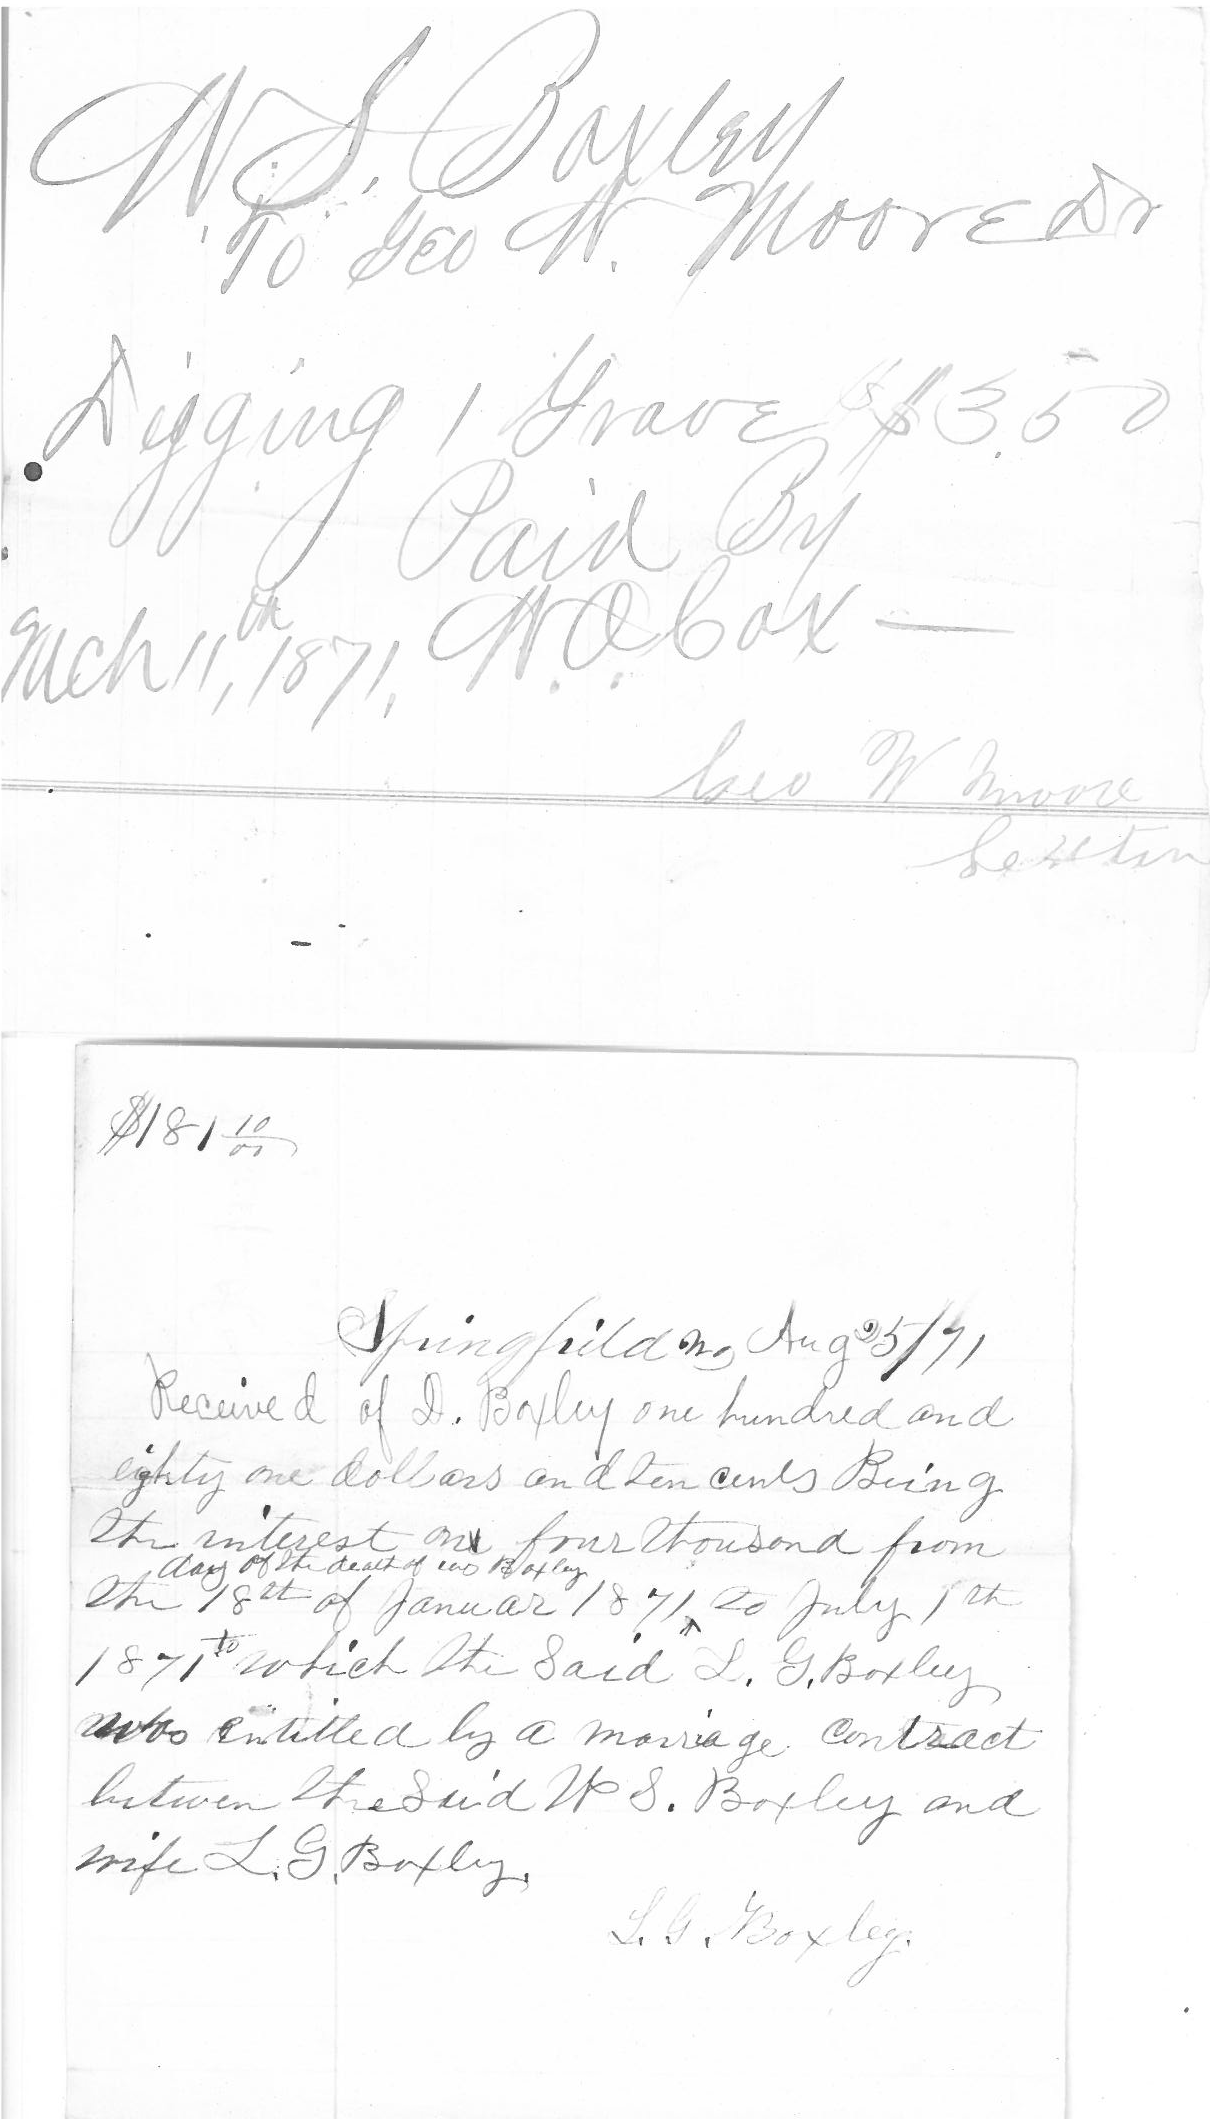 W. S. Boxley
To Geo W. Moore Dr
Digging 1 Grave $3.50
Paid By
Mch 11,th 1871, W. O. Cox —
Geo W Moore
Sexton
$181 10/00
Springfield Mo Aug 25/71
Received of D. Boxley one hundred and
eighty one dollars and ten cents Being
the interest on four thousand from
day of the death of WS Boxley
the 18th of Januar 1871 ^ to July 1th
1871 to which the Said L. G. Boxley
was entitled by a marriage contract
between the Said W S. Boxley and
wife L. G. Boxley.
L. G. Boxley.